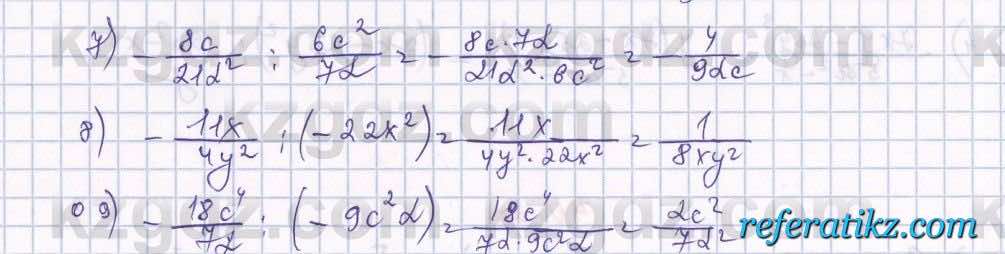 7) - 8c/21d² : 6c²/7d = - 8c·7d/21d²·6c² = - 4/9dc
8) - 11x/4y² : (-22x²) = 11x/4y²·22x² = 1/8xy²
9) - 18c⁴/7d : (-9c²d) = 18c⁴/7d·9c²d = 2c²/7d²
referatikz.com